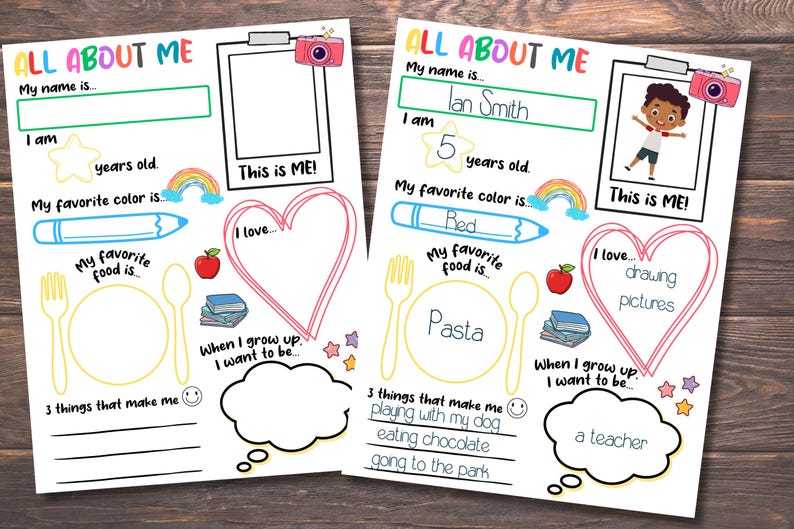 ALL ABOUT ME
My name is...
I am
years old.
This is ME!
My favorite color is...
I love...
My favorite
food is...
When I grow up,
I want to be...
3 things that make me
ALL ABOUT ME
My name is...
Ian Smith
I am
5 years old.
This is ME!
My favorite color is...
Red
My favorite
food is...
I love...
drawing
pictures
Pasta
When I grow up,
I want to be...
3 things that make me
playing with my dog
eating chocolate
going to the park
a teacher